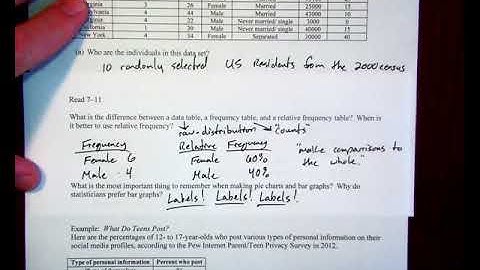 4 26 Female Married 25000 15
Pennsylvania 4 44 Male Married 43000 10
Virginia 4 22 Male Never married/ single 3000 0
California 1 30 Male Never married/ single 40000 15
New York 4 34 Female Separated 30000 40
(a) Who are the individuals in this data set?
10 randomly selected US Residents from the 2000 census
Read 7–11
What is the difference between a data table, a frequency table, and a relative frequency table? When is
it better to use relative frequency? raw-distribution "counts"
Frequency Relative Frequency
Female 6 Female 60% "make comparisons to
Male 4 Male 40% the whole"
What is the most important thing to remember when making pie charts and bar graphs? Why do
statisticians prefer bar graphs? Labels! Labels! Labels!
Example: What Do Teens Post?
Here are the percentages of 12- to 17-year-olds who post various types of personal information on their
social media profiles, according to the Pew Internet Parent/Teen Privacy Survey in 2012.
Type of personal information Percent who post